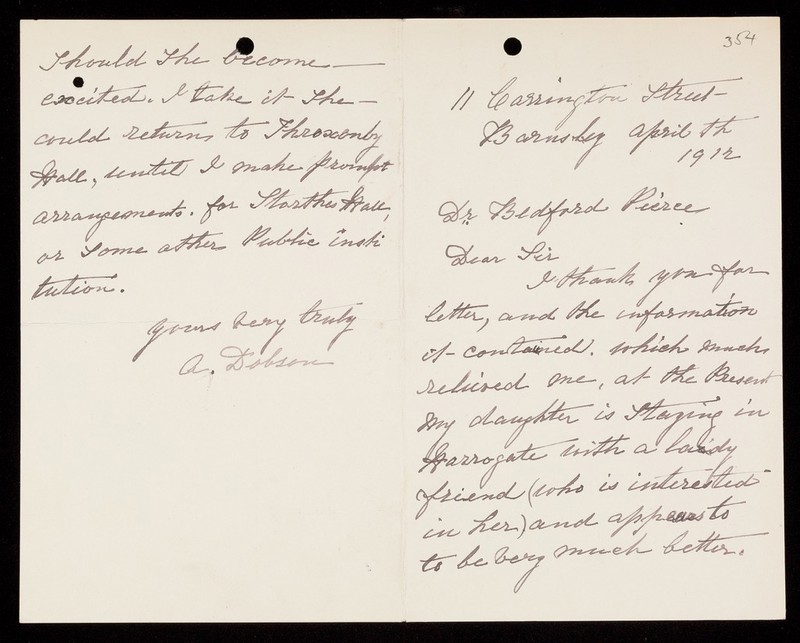 354
11 Carrington Street
Barnsley april th
1912
Dr. Bedford Pierce
Dear Sir
I thank you for
letter, and the information
it contained. which much
relieved me, at the Present
my daughter is Staying in
Harrogate with a lady
friend (who is interested
in her) and appears to
to be very much better.
Should She become —
excited. I take it She —
could return to Throxenby
Hall, until I make prompt
arrangements. for Storthes Hall,
or Some other Public insti
tution.
yours very truly
A. Dobson